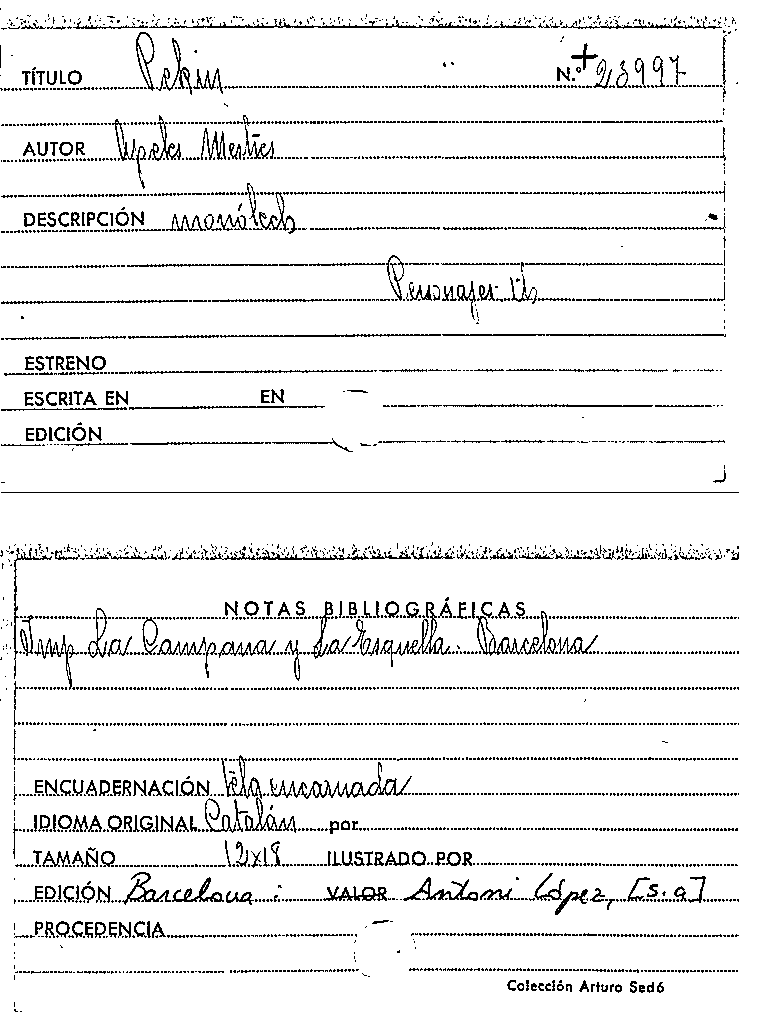 TÍTULO Pekin N.º + 23997
AUTOR Apeles Mestres
DESCRIPCIÓN monólech
Personajes
ESTRENO
ESCRITA EN EN
EDICIÓN
NOTAS BIBLIOGRÁFICAS
Imp La Campana y La Esquella. Barcelona
ENCUADERNACIÓN tela encarnada
IDIOMA ORIGINAL Catalán por
TAMAÑO 12x18 ILUSTRADO POR
EDICIÓN Barcelona : VALOR Antoni López, [s.a]
PROCEDENCIA
Colección Arturo Sedó